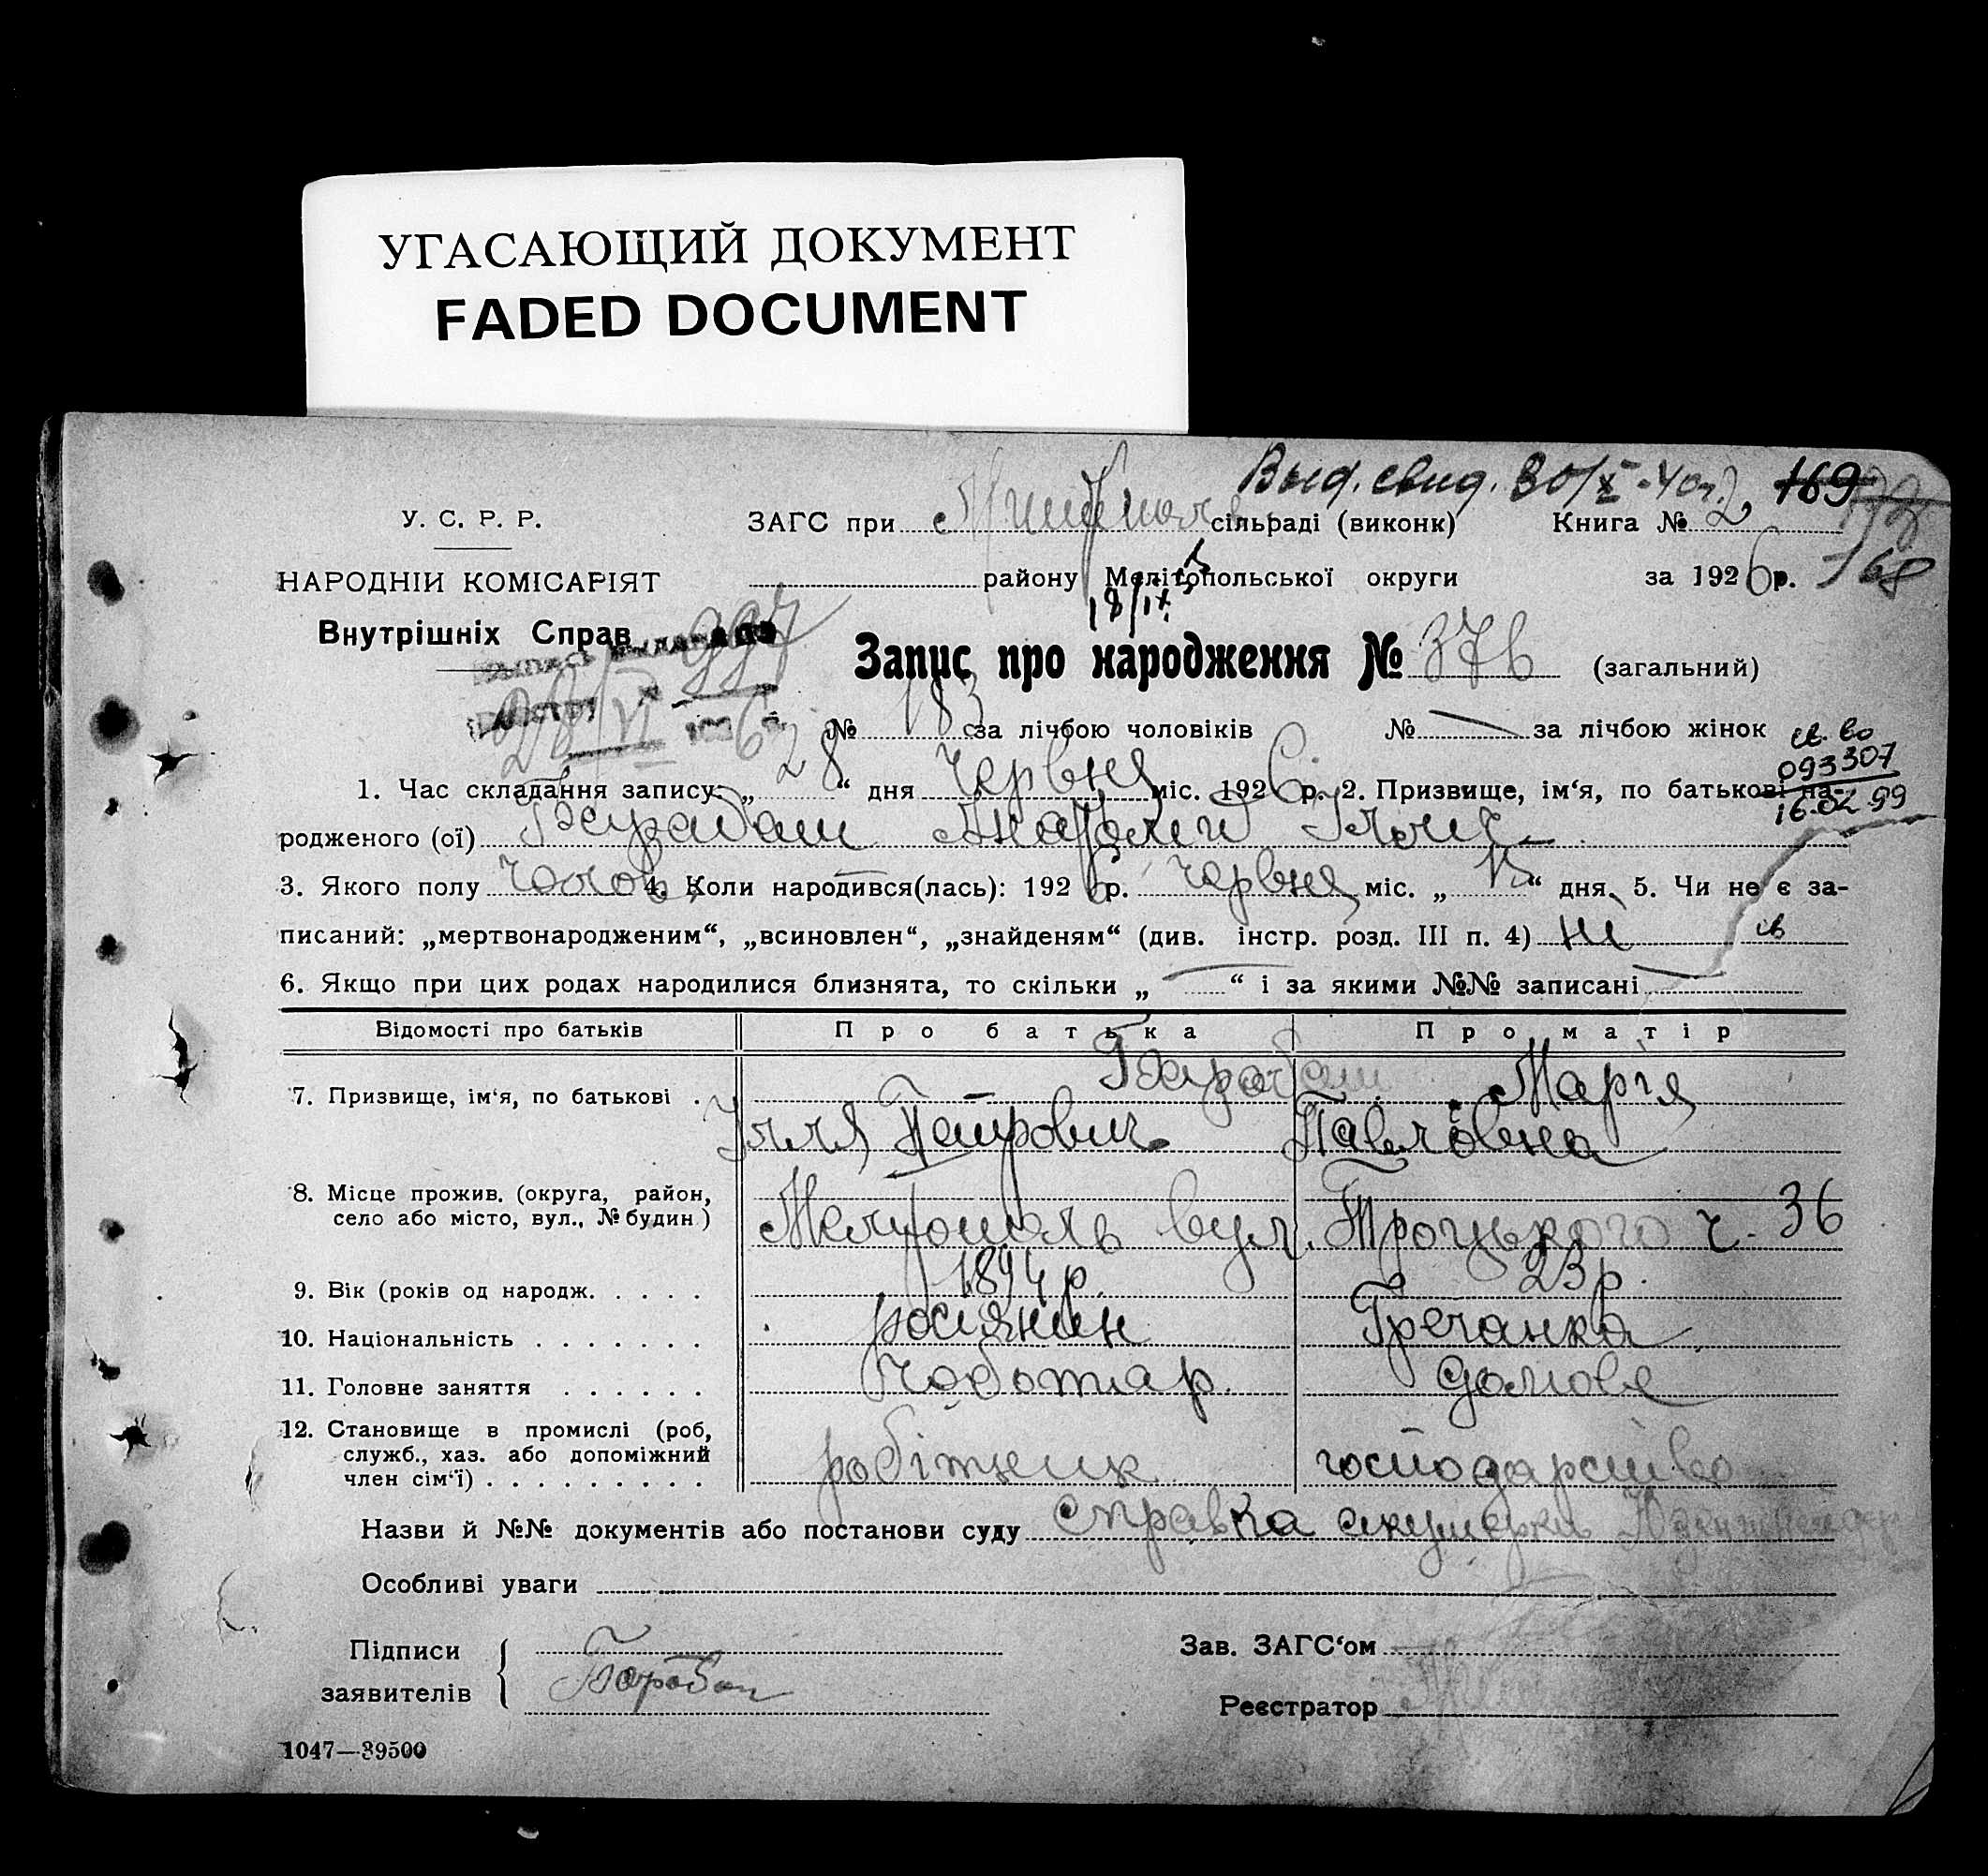 УГАСАЮЩИЙ ДОКУМЕНТ
FADED DOCUMENT
Выд. свид. 30/X-40г. 169
У. С. Р. Р. ЗАГС при сільраді (виконк) Книга № 2
168
НАРОДНІЙ КОМІСАРІЯТ району Мелітопольської округи за 1926 р.
18/IX
Внутрішніх Справ
997
Запис про народження № 376 (загальний)
28/VI 6
№ 183 за лічбою чоловіків № — за лічбою жінок
св. во
093307
16.02.99
1. Час складання запису: „28“ дня Червня міс. 1926 р. 2. Призвище, ім‘я, по батькові на-
родженого (ої) Барабаш Анатолій Ілліч
3. Якого полу чолов. 4. Коли народився(лась): 1926 р. червня міс. „ “ дня. 5. Чи не є за-
писаний: „мертвонародженим“, „всиновлен“, „знайденям“ (див. інстр. розд. III п. 4) ні
6. Якщо при цих родах народилися близнята, то скільки „—“ і за якими №№ записані —
Відомості про батьків Про батька Про матір
Барабаш Марія
7. Призвище, ім‘я, по батькові . Ілля Петрович Павловна
8. Місце прожив. (округа, район,
село або місто, вул., № будин.) Мелітополь вул. Троцького ч. 36
9. Вік (років од народж. . . . . 1894 р. 23 р.
10. Національність . . . . . . . росіянин Гречанка
11. Головне заняття . . . . . . Чоботар. домове
12. Становище в промислі (роб,
служб., хаз. або допоміжний
член сім‘ї) . . . . . . . . . робітник господарство
Назви й №№ документів або постанови суду справка акушерки
Особливі уваги
Підписи Зав. ЗАГС‘ом
заявителів Барабаш
Реєстратор
1047—39500